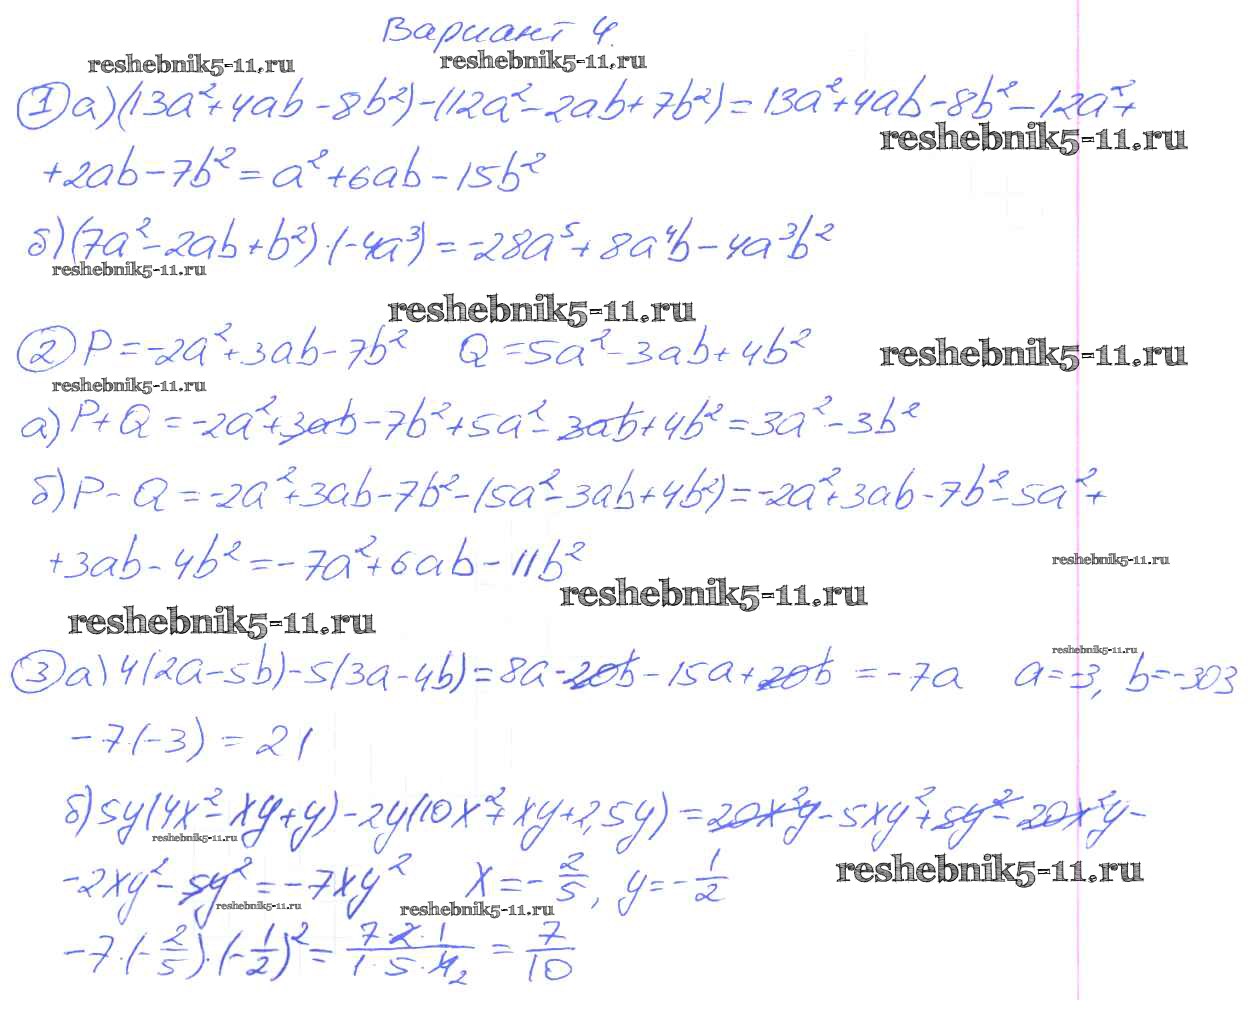 Вариант 4.
reshebnik5-11.ru reshebnik5-11.ru
① а) (13a²+4ab-8b²)-(12a²-2ab+7b²)=13a²+4ab-8b²-12a²+
reshebnik5-11.ru
+2ab-7b²=a²+6ab-15b²
б) (7a²-2ab+b²)·(-4a³)=-28a⁵+8a⁴b-4a³b²
reshebnik5-11.ru
reshebnik5-11.ru
② P=-2a²+3ab-7b² Q=5a²-3ab+4b²
reshebnik5-11.ru
reshebnik5-11.ru
а) P+Q=-2a²+3ab-7b²+5a²-3ab+4b²=3a²-3b²
б) P-Q=-2a²+3ab-7b²-(5a²-3ab+4b²)=-2a²+3ab-7b²-5a²+
+3ab-4b²=-7a²+6ab-11b²
reshebnik5-11.ru
reshebnik5-11.ru
reshebnik5-11.ru
reshebnik5-11.ru
③ а) 4(2a-5b)-5(3a-4b)=8a-20b-15a+20b=-7a a=-3, b=-303
-7·(-3)=21
б) 5y(4x²-xy+y)-2y(10x²+xy+2,5y)=20x²y-5xy²+5y²-20x²y-
reshebnik5-11.ru
-2xy²-5y²=-7xy² x=-2/5, y=-1/2
reshebnik5-11.ru
reshebnik5-11.ru reshebnik5-11.ru
-7·(-2/5)·(-1/2)²=7·2·1/1·5·4₂=7/10